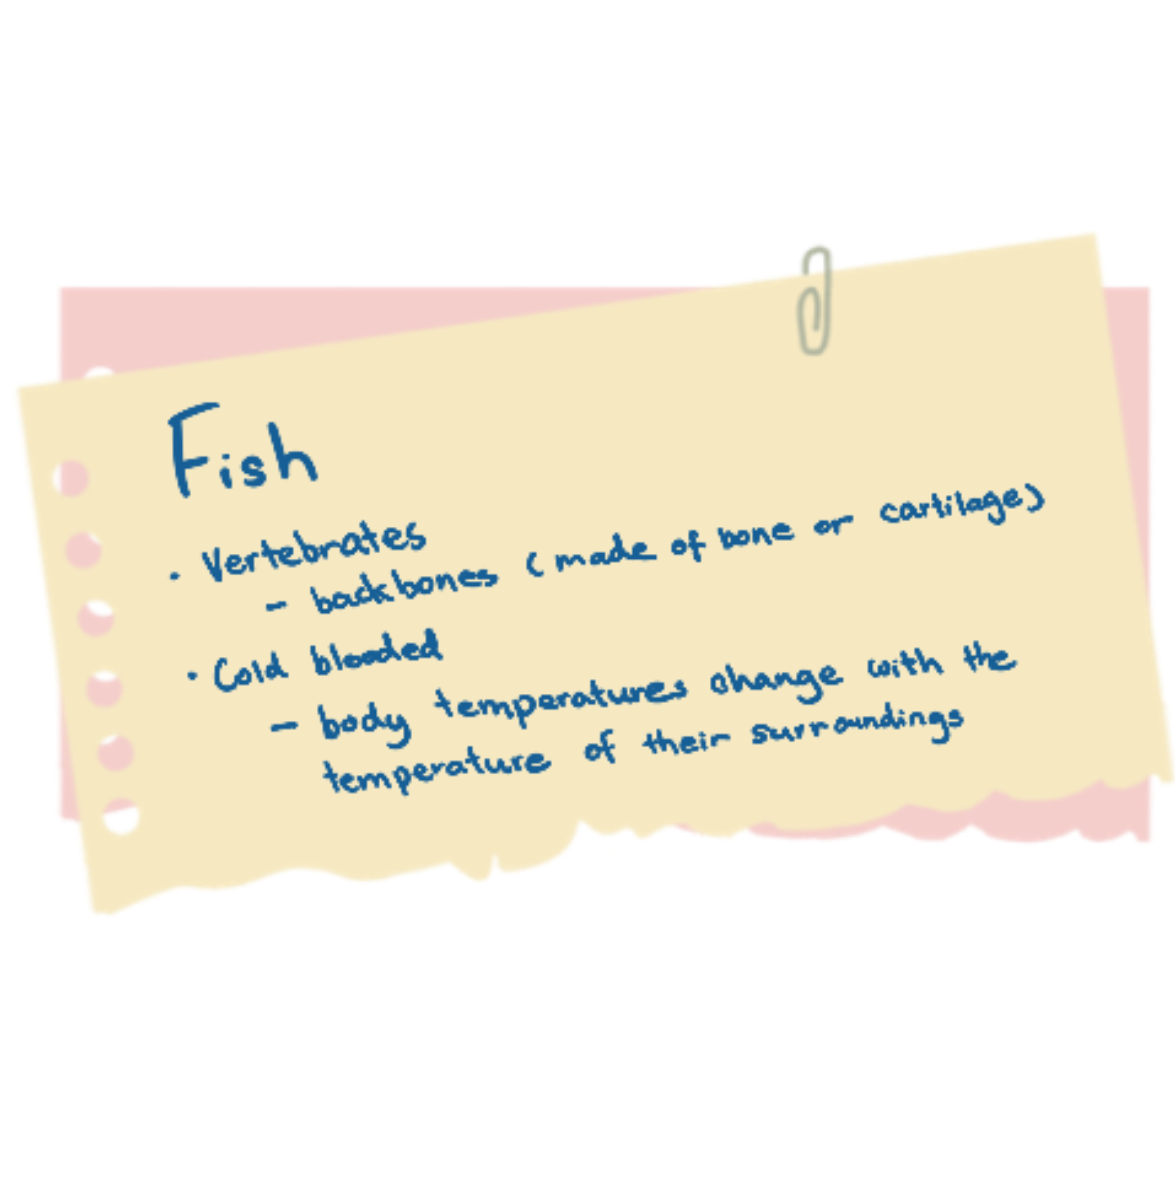 Fish
· Vertebrates
- backbones (made of bone or cartilage)
· Cold blooded
- body temperatures change with the
temperature of their surroundings